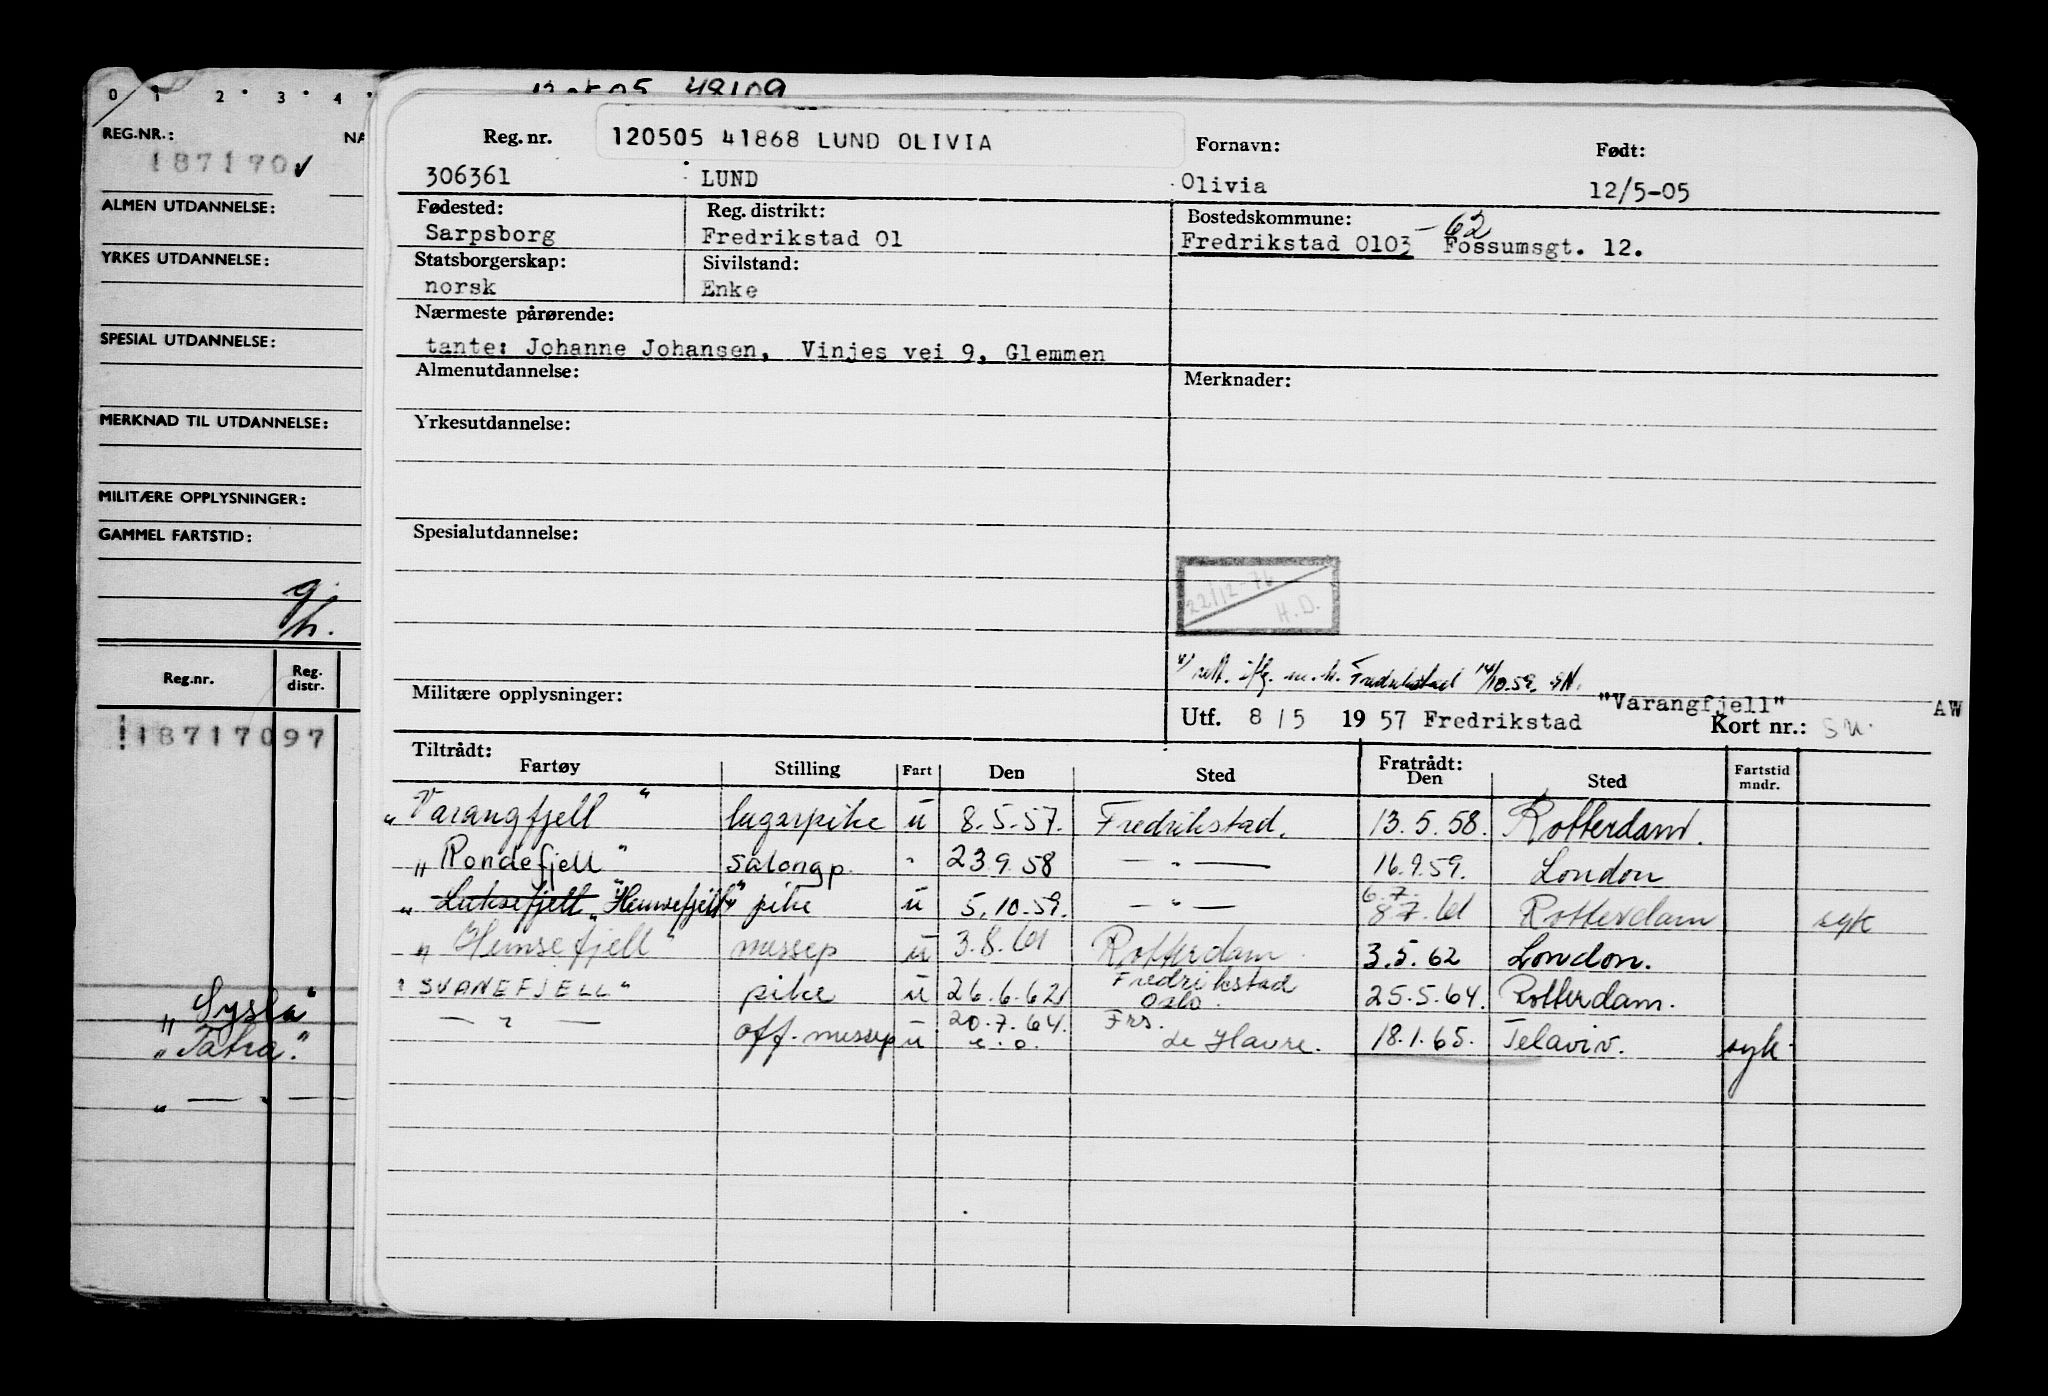 0 1 2 3 4
REG.NR.: NA
187170 ✓
ALMEN UTDANNELSE:
YRKES UTDANNELSE:
SPESIAL UTDANNELSE:
MERKNAD TIL UTDANNELSE:
MILITÆRE OPPLYSNINGER:
GAMMEL FARTSTID:
Reg.nr. Reg. distr.
18717097
"Sysla"
"Tatra."
" — " —
48109
Reg. nr. 120505 41868 LUND OLIVIA Fornavn: Født:
306361 LUND Olivia 12/5-05
Fødested: Reg. distrikt: Bostedskommune: - 62
Sarpsborg Fredrikstad 01 Fredrikstad 0103 Fossumsgt. 12.
Statsborgerskap: Sivilstand:
norsk Enke
Nærmeste pårørende:
tante: Johanne Johansen, Vinjes vei 9, Glemmen
Almenutdannelse: Merknader:
Yrkesutdannelse:
Spesialutdannelse:
22/12-76
H.D.
rett. iflg. m.k. Fredrikstad 14/10.59.
Militære opplysninger: "Varangfjell" AW
Utf. 8 / 5 19 57 Fredrikstad Kort nr.:
Tiltrådt: Fratrådt:
Fartøy Stilling Fart Den Sted Den Sted Fartstid mndr.
"Varangfjell" lugarpike u 8.5.57. Fredrikstad. 13.5.58. Rotterdam.
"Rondefjell" salongp. " 23.9.58 — " — 16.9.59. London
"Luksefjell "Hemsefjell" pike u 5.10.59. — " — 6.7. 8.7.61 Rotterdam syk
"Hemsefjell" messep u 3.8.61 Rotterdam. 3.5.62 London.
"SVANEFJELL" pike u 26.6.62 Fredrikstad Oslo. 25.5.64. Rotterdam.
— " — off. messep u 20.7.64. Frs. de Havre. 18.1.65. Telaviv. syk.